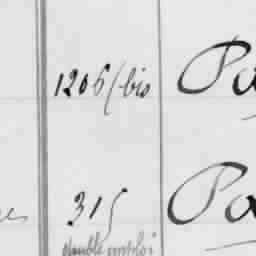 1206/bis Pa
es 315 Pa
double emploi